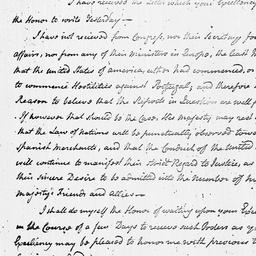 I have received the Letter which your Excellency
the Honor to write Yesterday —
I have not recieved from Congress, nor their Secretary for
affairs, nor from any of their Ministers in Europe, the least
that the united States of america either had commenced, or
to commence Hostilities against Portugal; and therefore
Reason to believe that the Reports in Question are well f
If however that should be the Case. His majesty may rest
that the Law of Nations will be punctually observed tow
Spanish merchants, and that the Conduct of the united
will continue to manifest their strict Regard to Justice, as
their sincere Desire to be admitted into the Number of h
majesty's Friends and allies. —
I shall do myself the Honor of waiting upon your Ex
in the Course of a few Days to receive such Orders as y
Excellency may be pleased to honor me with previous t